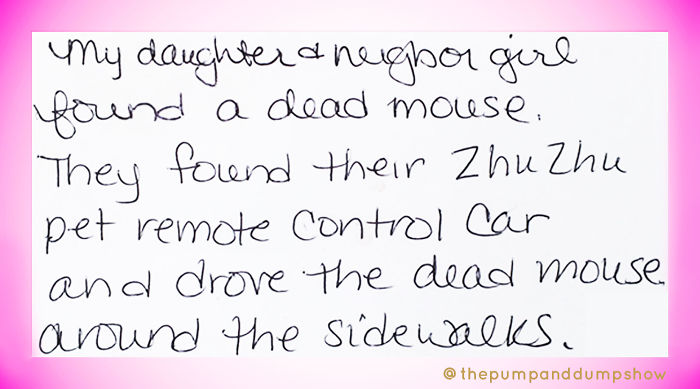 My daughter & neigbor girl
found a dead mouse.
They found their Zhu Zhu
pet remote control car
and drove the dead mouse
around the sidewalks.
@thepumpanddumpshow